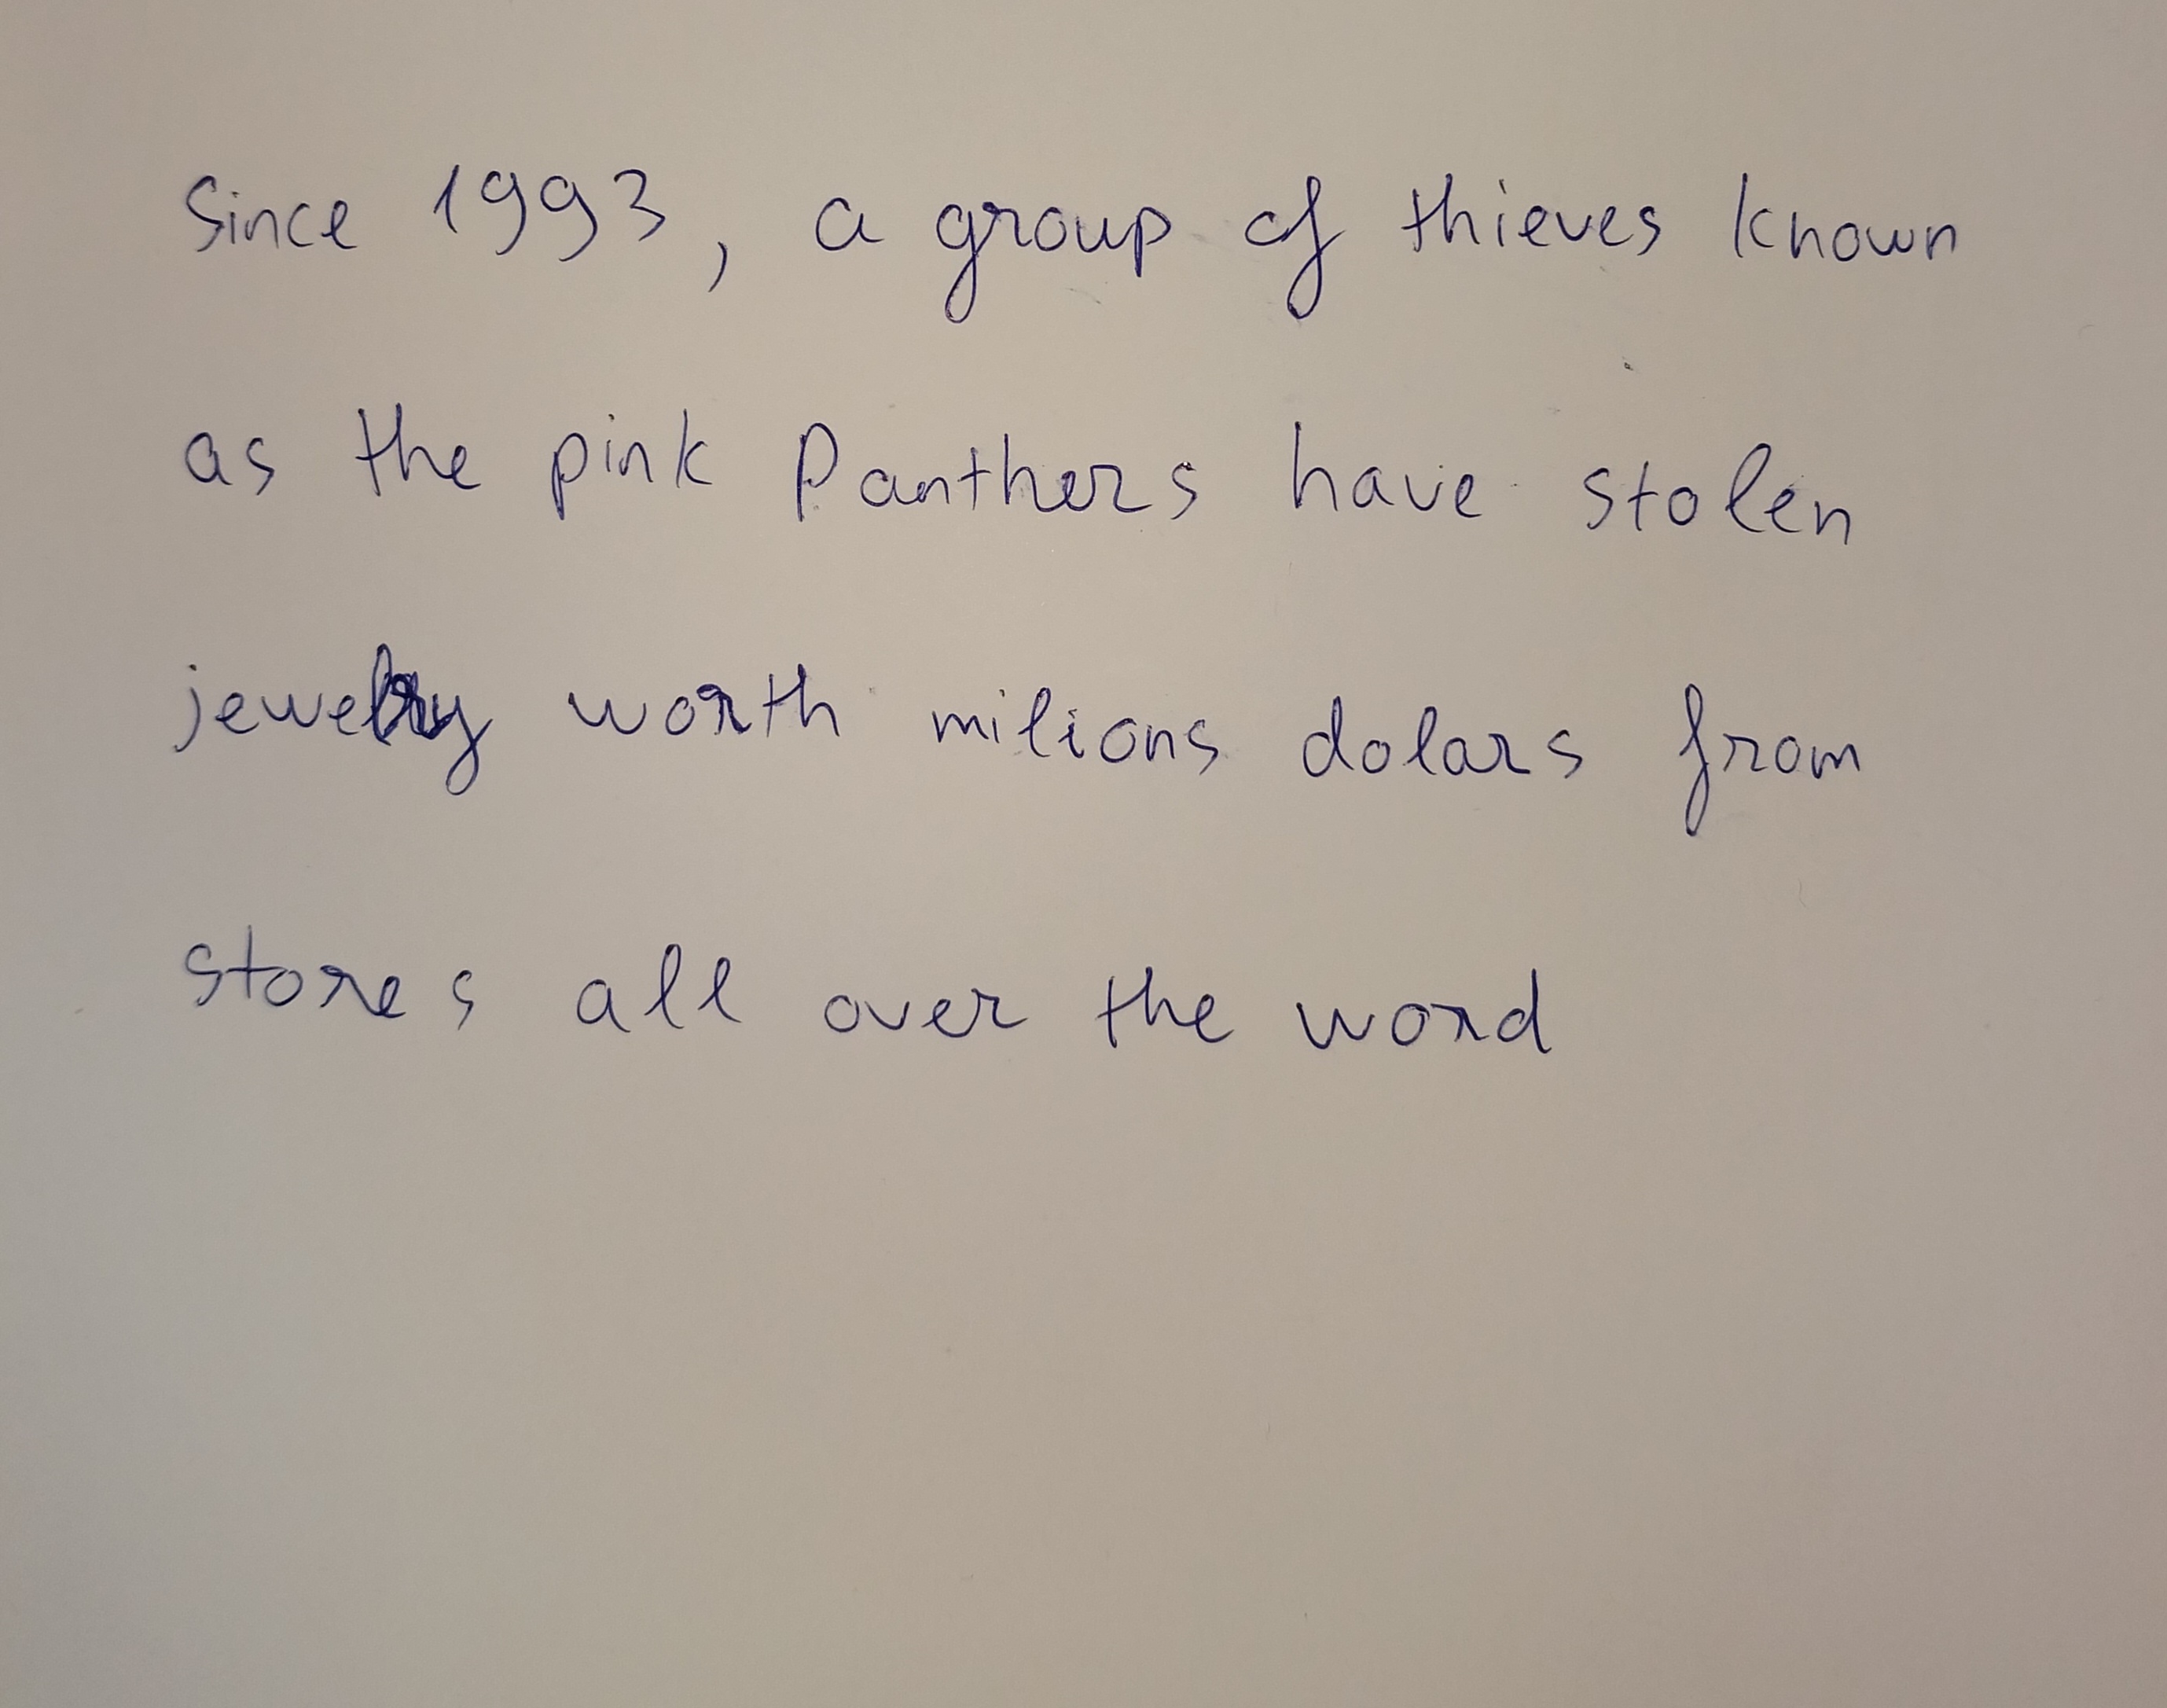 Since 1993, a group of thieves known
as the pink Panthers have stolen
jewelry worth milions dolars from
stores all over the word